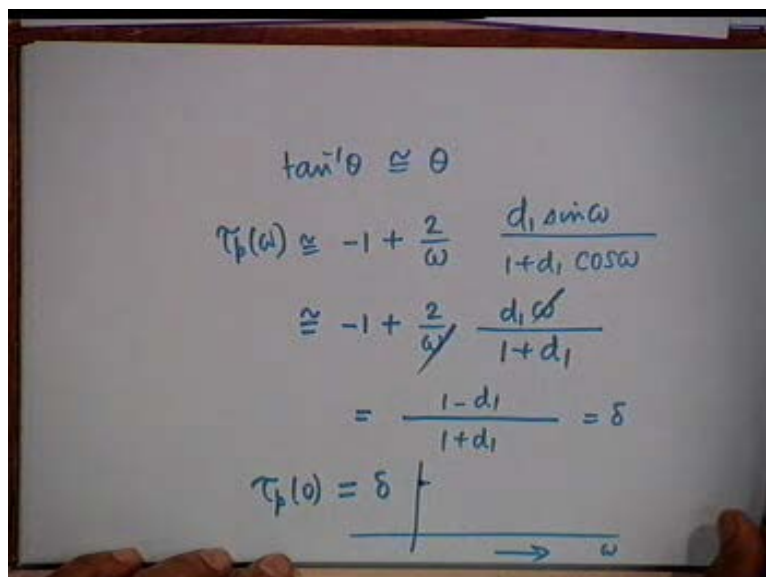 tan⁻¹θ ≅ θ
τp(ω) ≅ -1 + 2/ω d₁ sinω / 1+d₁ cosω
≅ -1 + 2/ω d₁ω / 1+d₁
= 1-d₁ / 1+d₁ = δ
τp(0) = δ
→ ω